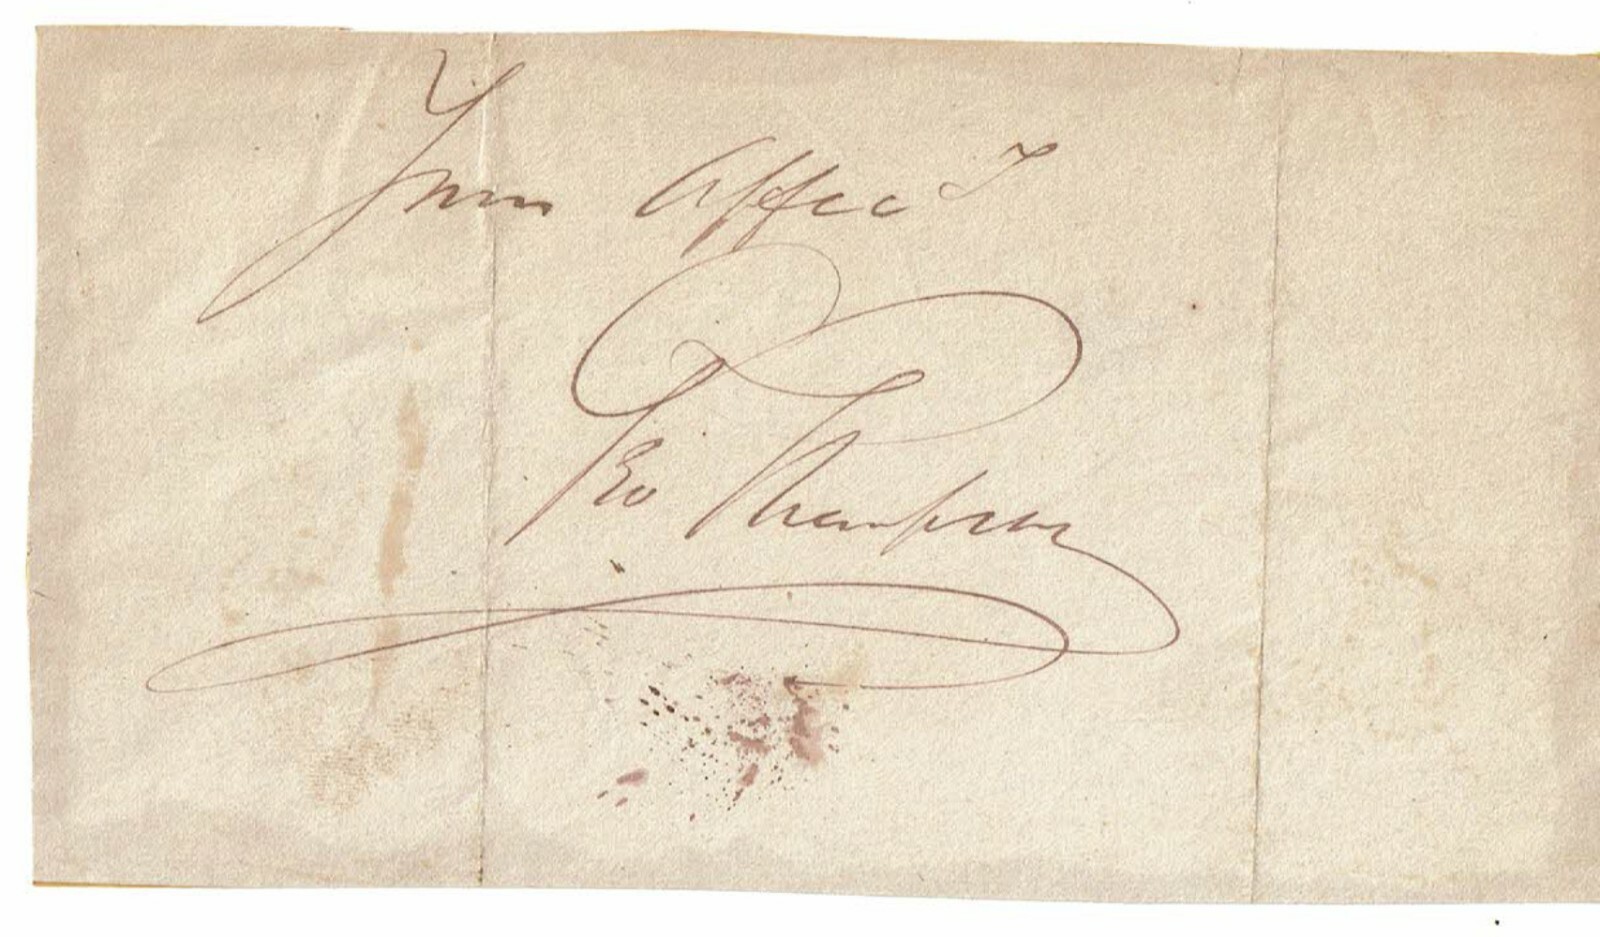 Yours Affec^t
Geo Thompson